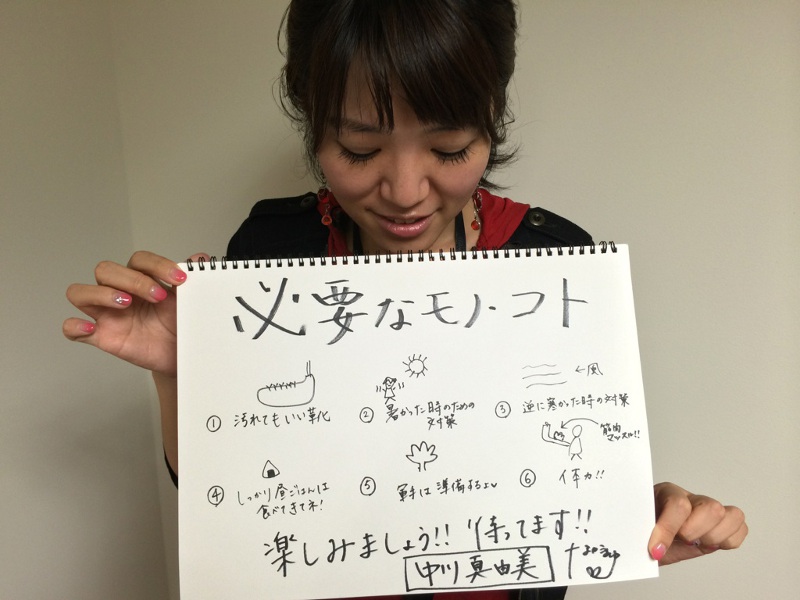 必要なモノ・コト
① 汚れてもいい靴
② 暑かった時のための
対策
③ 逆に寒かった時の対策
←風
筋肉
マッスル!!
④ しっかり昼ごはんは
食べてきてネ!
⑤ 軍手は準備するよ
⑥ 体力!!
楽しみましょう!! 待ってます!!
中川真由美